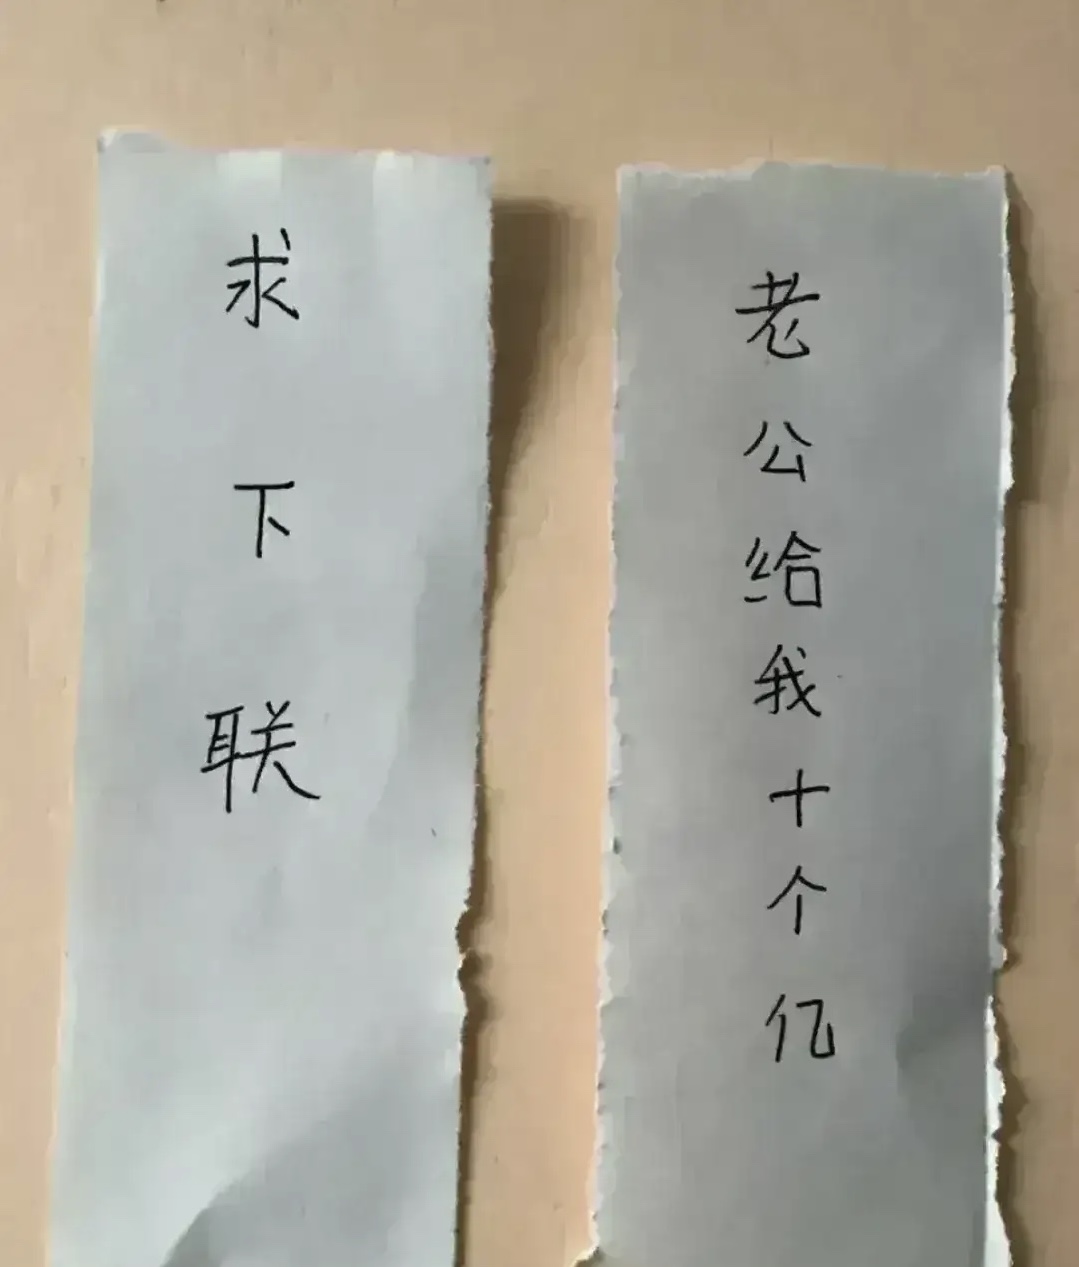 老公给我十个亿
求下联